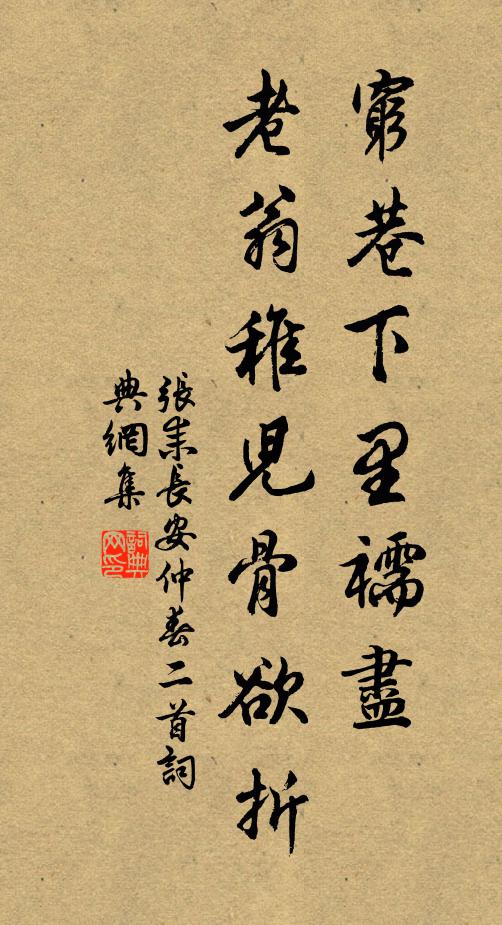 窮巷下里襦盡
老翁稚兒骨欲折
張耒長安仲春二首詞
典網集
詞典
网印